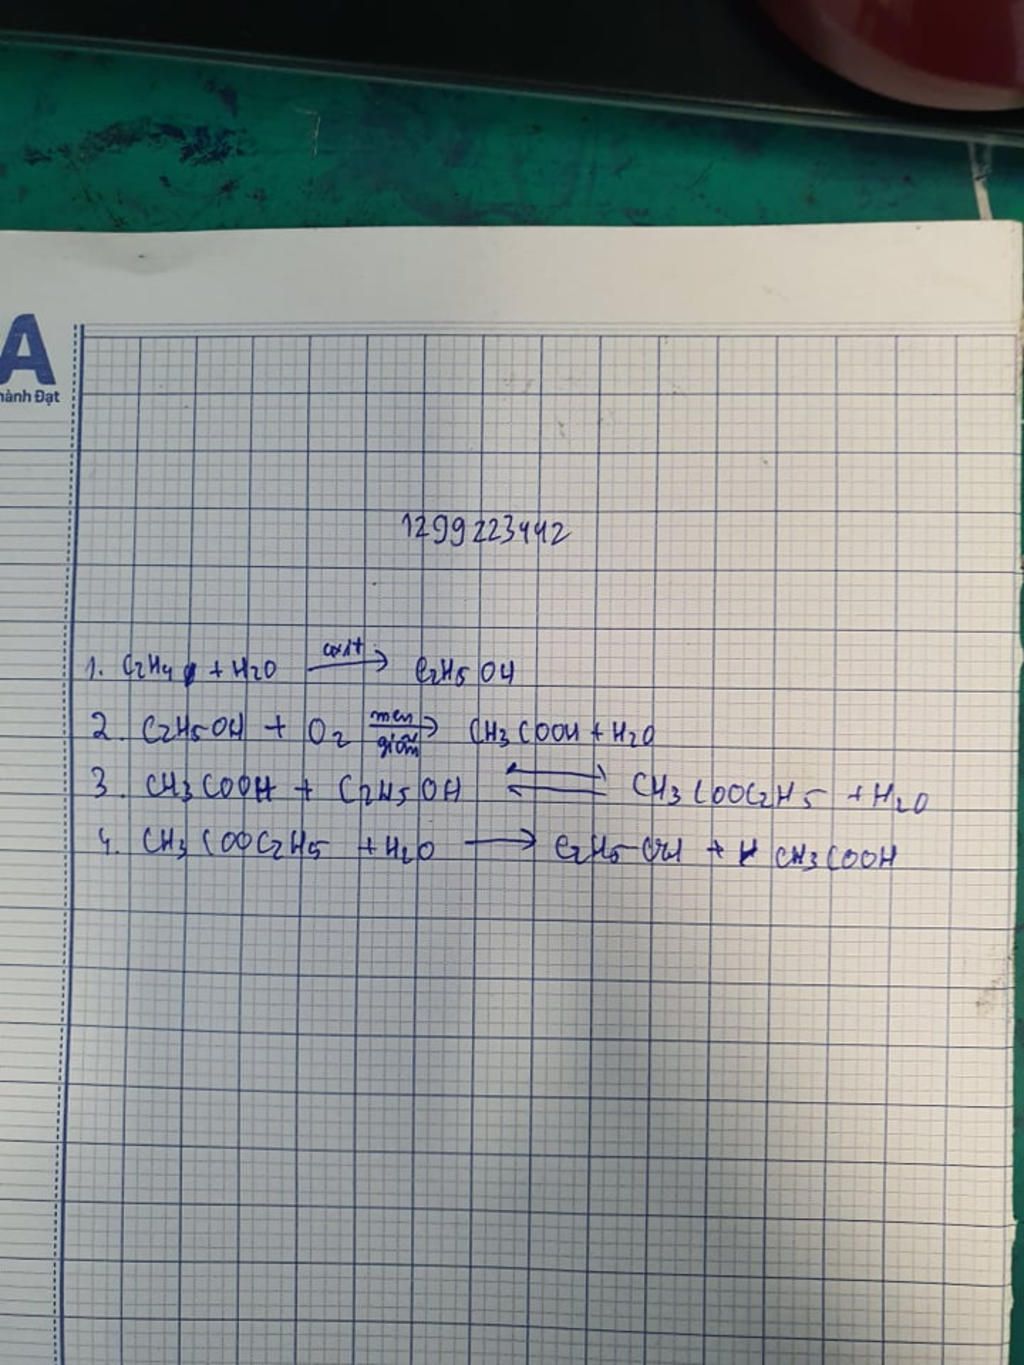 A
hành Đạt
1299223442
1. C2H4 + H2O axit → C2H5OH
2. C2H5OH + O2 men giấm → CH3COOH + H2O
3. CH3COOH + C2H5OH ⇌ CH3COOC2H5 + H2O
4. CH3COOC2H5 + H2O → C2H5OH + CH3COOH